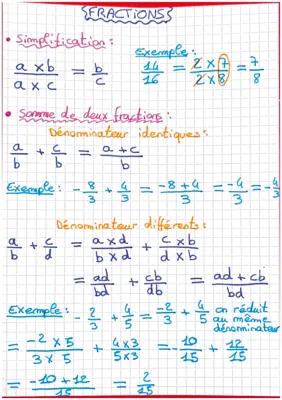 FRACTIONS
• Simplification :
a x b / a x c = b / c
Exemple :
14 / 16 = 2 x 7 / 2 x 8 = 7 / 8
• Somme de deux fractions :
Dénominateur identiques :
a / b + c / b = a + c / b
Exemple : - 8 / 3 + 4 / 3 = -8 + 4 / 3 = -4 / 3 = - 4 / 3
Dénominateurs différents :
a / b + c / d = a x d / b x d + c x b / d x b
= ad / bd + cb / db = ad + cb / bd
Exemple : - 2 / 3 + 4 / 5 = -2 / 3 + 4 / 5 on réduit au même dénominateur
= -2 x 5 / 3 x 5 + 4 x 3 / 5 x 3 = -10 / 15 + 12 / 15
= -10 + 12 / 15 = 2 / 15